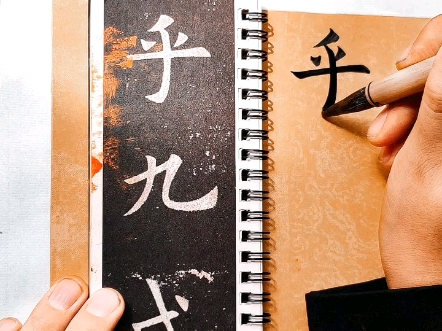 乎
九
乎